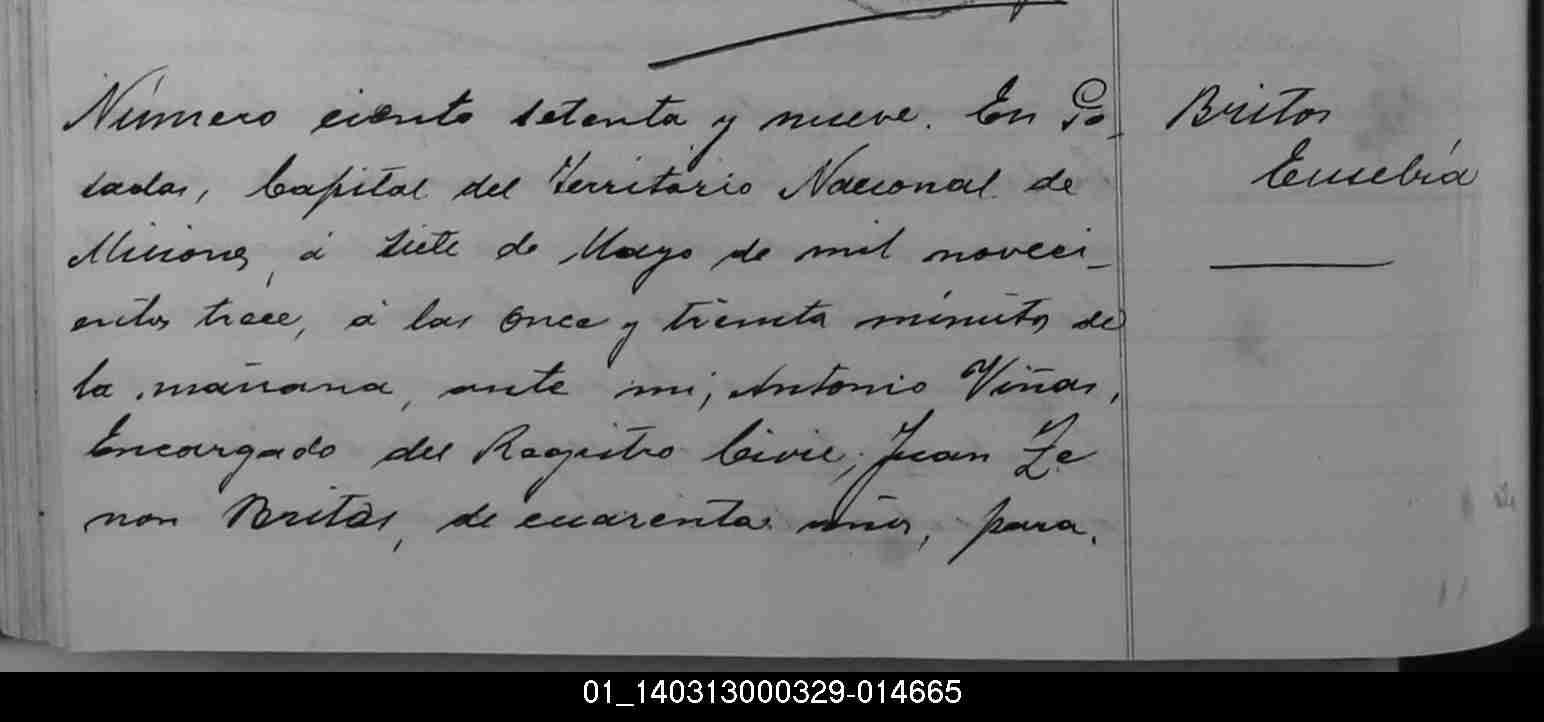 Número ciento setenta y nueve. En Po-
sadas, Capital del Territorio Nacional de
Misiones, á siete de Mayo de mil noveci-
entos trece, á las once y treinta minutos de
la mañana, ante mi, Antonio Viñas,
Encargado del Registro Civil, Juan Ze
non Britos, de cuarenta años, para.
Britos
Eusebia
01_140313000329-014665